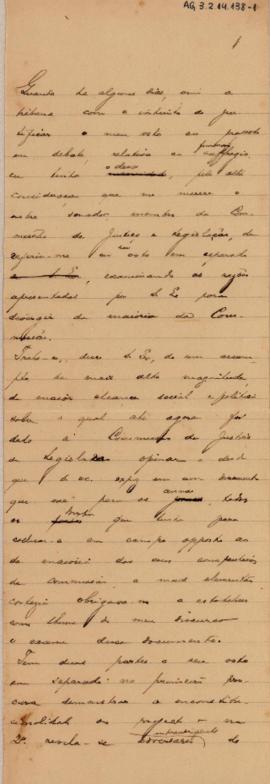 AG. 3.2.14.138-1
1
Quando ha alguns dias, vim a
tribuna com o intuito de jus-
tificar o meu voto ao projecto
em debate, relativo ao suffragio,
eu tinha o dever, pela alta
consideração que me merece o
nobre senador, membro da Com-
missão de Justiça e Legislação, de
referir-me ao seu voto em separado
examinando as razões
apresentadas por S. Ex. para
divergir da maioria da Com-
missão.
Trata-se, disse S. Ex., de um assum-
pto da mais alta magnitude,
de maior alcance social e politico
sobre o qual até agora foi
dado à Commissão de Justiça
e Legislação opinar e desde
que S. Ex. em um documento
que era para os todos
os que tinha para
collocar-se em campo opposto ao
da maioria dos seus companheiros
de commissão, a mais elementar
cortezia obrigava-me a estabelecer
como thema do meu discurso
o exame desse documento.
Tem duas partes o seu voto
em separado: na primeira pro-
cura demonstrar a inconstitu-
cionalidade do projecto e na
2ª revela-se adversario do